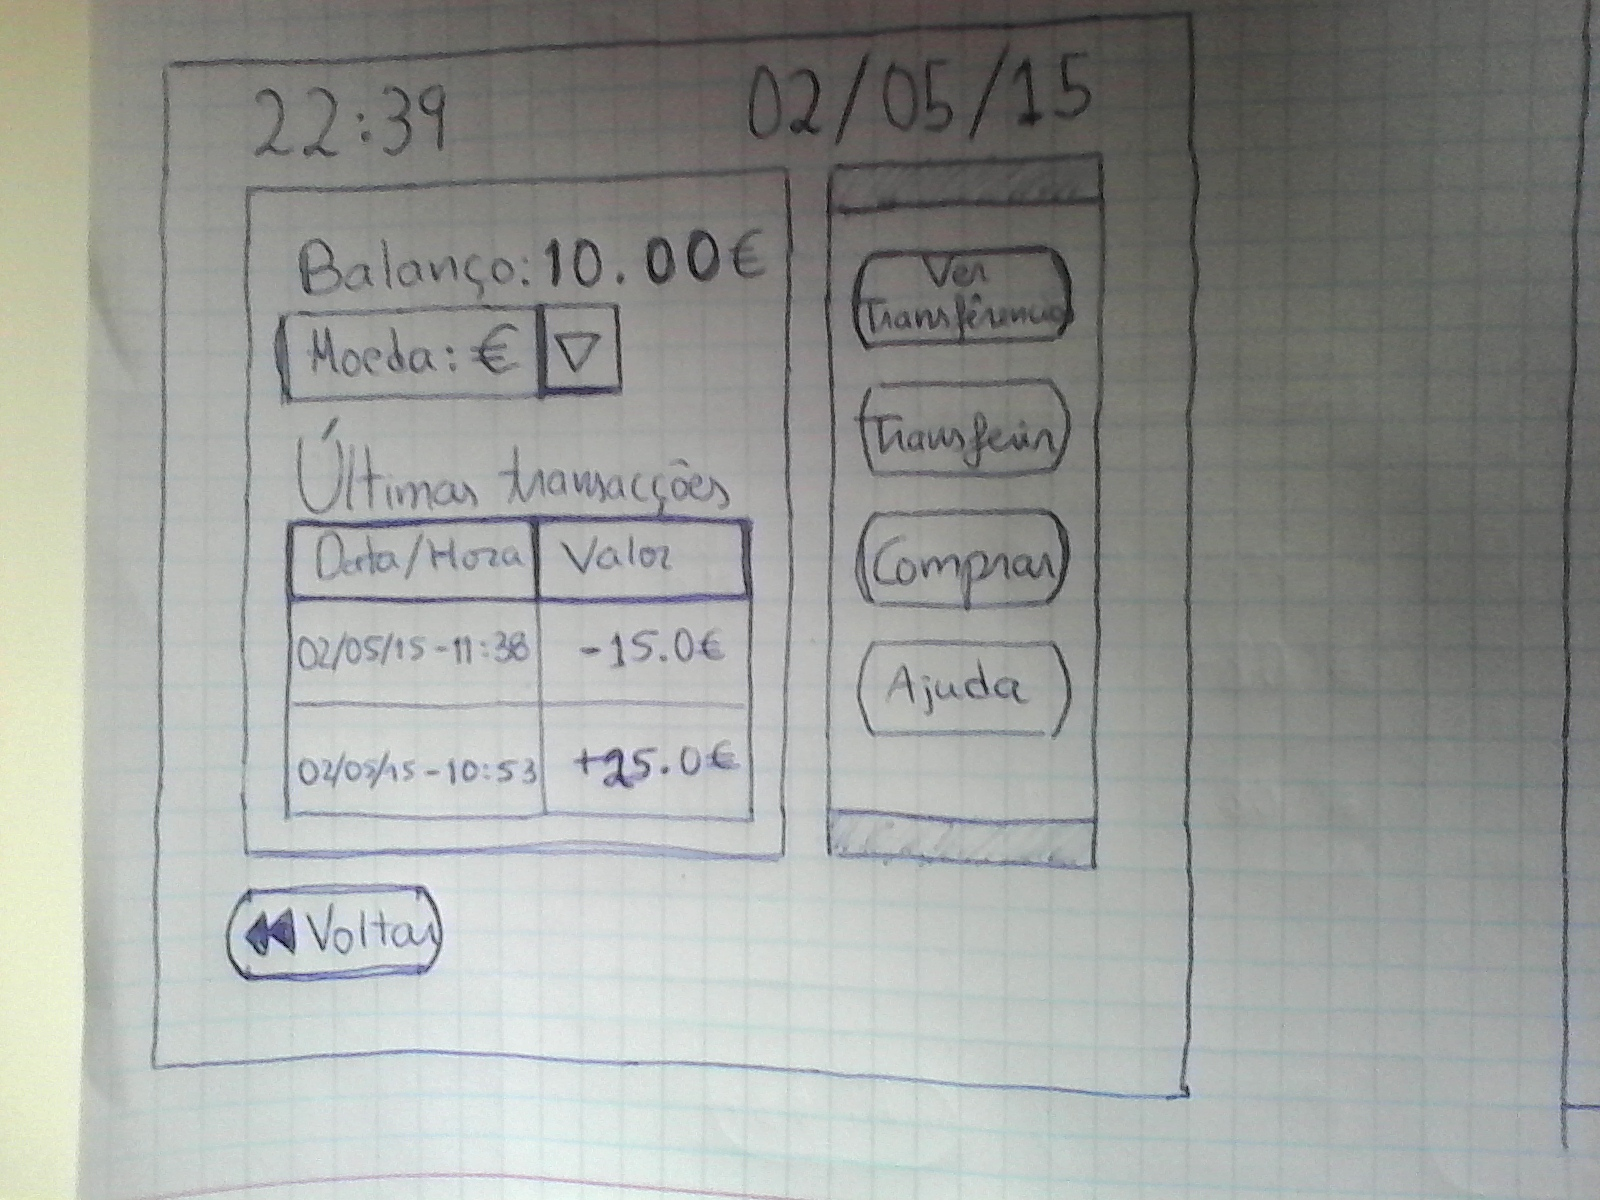 22:39 02/05/15
Balanço: 10.00€
Moeda: €
Últimas transacções
Data/Hora Valor
02/05/15-11:38 -15.0€
02/05/15-10:53 +25.0€
Ver
Transferência
Transferir
Comprar
Ajuda
Voltar